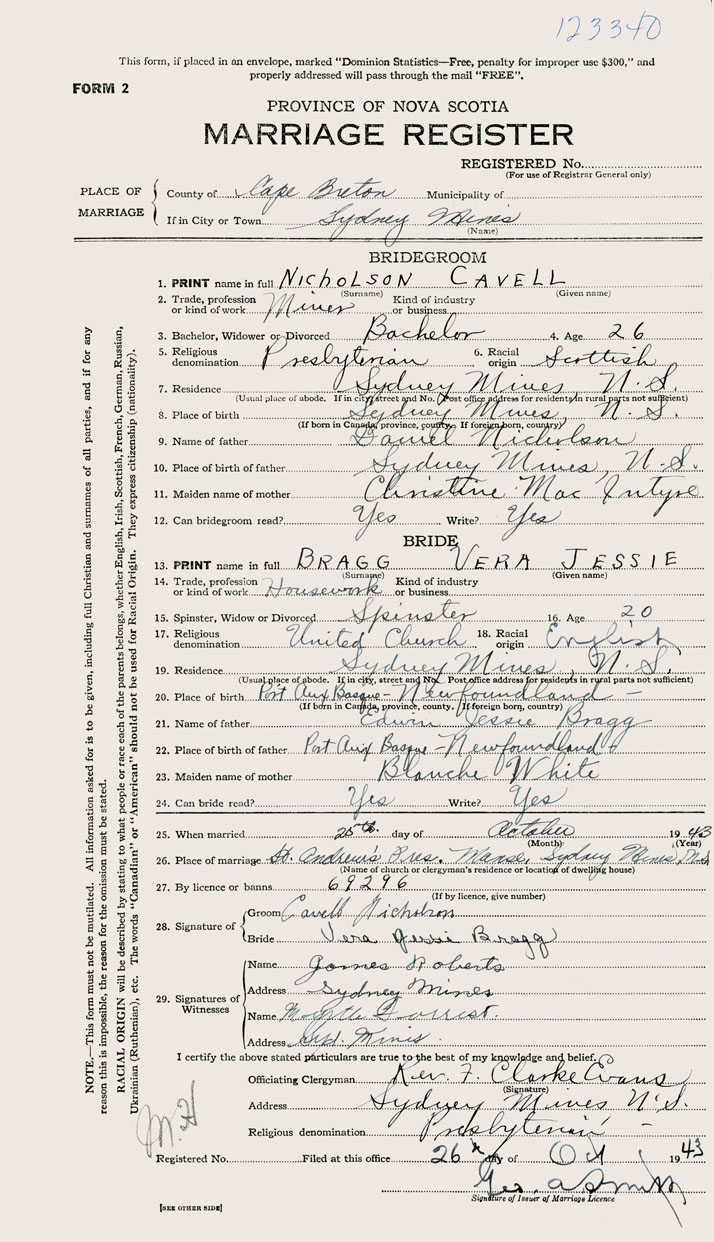 123340
This form, if placed in an envelope, marked "Dominion Statistics—Free, penalty for improper use $300," and
properly addressed will pass through the mail "FREE".
FORM 2
PROVINCE OF NOVA SCOTIA
MARRIAGE REGISTER
REGISTERED No.
(For use of Registrar General only)
PLACE OF MARRIAGE
County of Cape Breton Municipality of
If in City or Town Sydney Mines
(Name)
BRIDEGROOM
1. PRINT name in full NICHOLSON CAVELL
(Surname) (Given name)
2. Trade, profession or kind of work Miner Kind of industry or business
3. Bachelor, Widower or Divorced Bachelor 4. Age 26
5. Religious denomination Presbyterian 6. Racial origin Scottish
7. Residence Sydney Mines, N.S.
(Usual place of abode. If in city, street and No. Post office address for residents in rural parts not sufficient)
8. Place of birth Sydney Mines, N.S.
(If born in Canada, province, county. If foreign born, country)
9. Name of father Daniel Nicholson
10. Place of birth of father Sydney Mines, N.S.
11. Maiden name of mother Christine Mac Intyre
12. Can bridegroom read? Yes Write? Yes
BRIDE
13. PRINT name in full BRAGG VERA JESSIE
(Surname) (Given name)
14. Trade, profession or kind of work Housework Kind of industry or business
15. Spinster, Widow or Divorced Spinster 16. Age 20
17. Religious denomination United Church 18. Racial origin English
19. Residence Sydney Mines, N.S.
(Usual place of abode. If in city, street and No. Post office address for residents in rural parts not sufficient)
20. Place of birth Port Aux Basque - Newfoundland -
(If born in Canada, province, county. If foreign born, country)
21. Name of father Edwin Jessie Bragg
22. Place of birth of father Port Aux Basque - Newfoundland
23. Maiden name of mother Blanche White
24. Can bride read? Yes Write? Yes
25. When married 25th day of October 1943
(Month) (Year)
26. Place of marriage St. Andrew's Pres. Manse, Sydney Mines, N.S.
(Name of church or clergyman's residence or location of dwelling house)
27. By licence or banns 69296
(If by licence, give number)
28. Signature of
Groom Cavell Nicholson
Bride Vera Jessie Bragg
29. Signatures of Witnesses
Name James Roberts
Address Sydney Mines
Name Myrtle Forrest.
Address Syd. Mines.
I certify the above stated particulars are true to the best of my knowledge and belief.
Officiating Clergyman Rev. F. Clarke Evans
(Signature)
Address Sydney Mines N.S.
Religious denomination Presbyterian -
Registered No. Filed at this office 26 day of Oct 1943
Geo. A Smith
Signature of Issuer of Marriage Licence
[SEE OTHER SIDE]
NOTE.—This form must not be mutilated. All information asked for is to be given, including full Christian and surnames of all parties, and if for any
reason this is impossible, the reason for the omission must be stated.
RACIAL ORIGIN will be described by stating to what people or race each of the parents belongs, whether English, Irish, Scottish, French, German, Russian,
Ukrainian (Ruthenian), etc. The words "Canadian" or "American" should not be used for Racial Origin. They express citizenship (nationality).